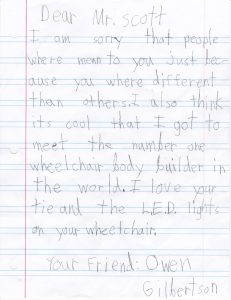 Dear Mr. scott
I am sorry that people
where mean to you just bec-
ause you where different
than others. I also think
its cool that I got to
meet the number one
wheelchair body builder in
the world. I love your
tie and the L.E.D. lights
on your wheetchair.
Your Friend: Owen
Gilbertson